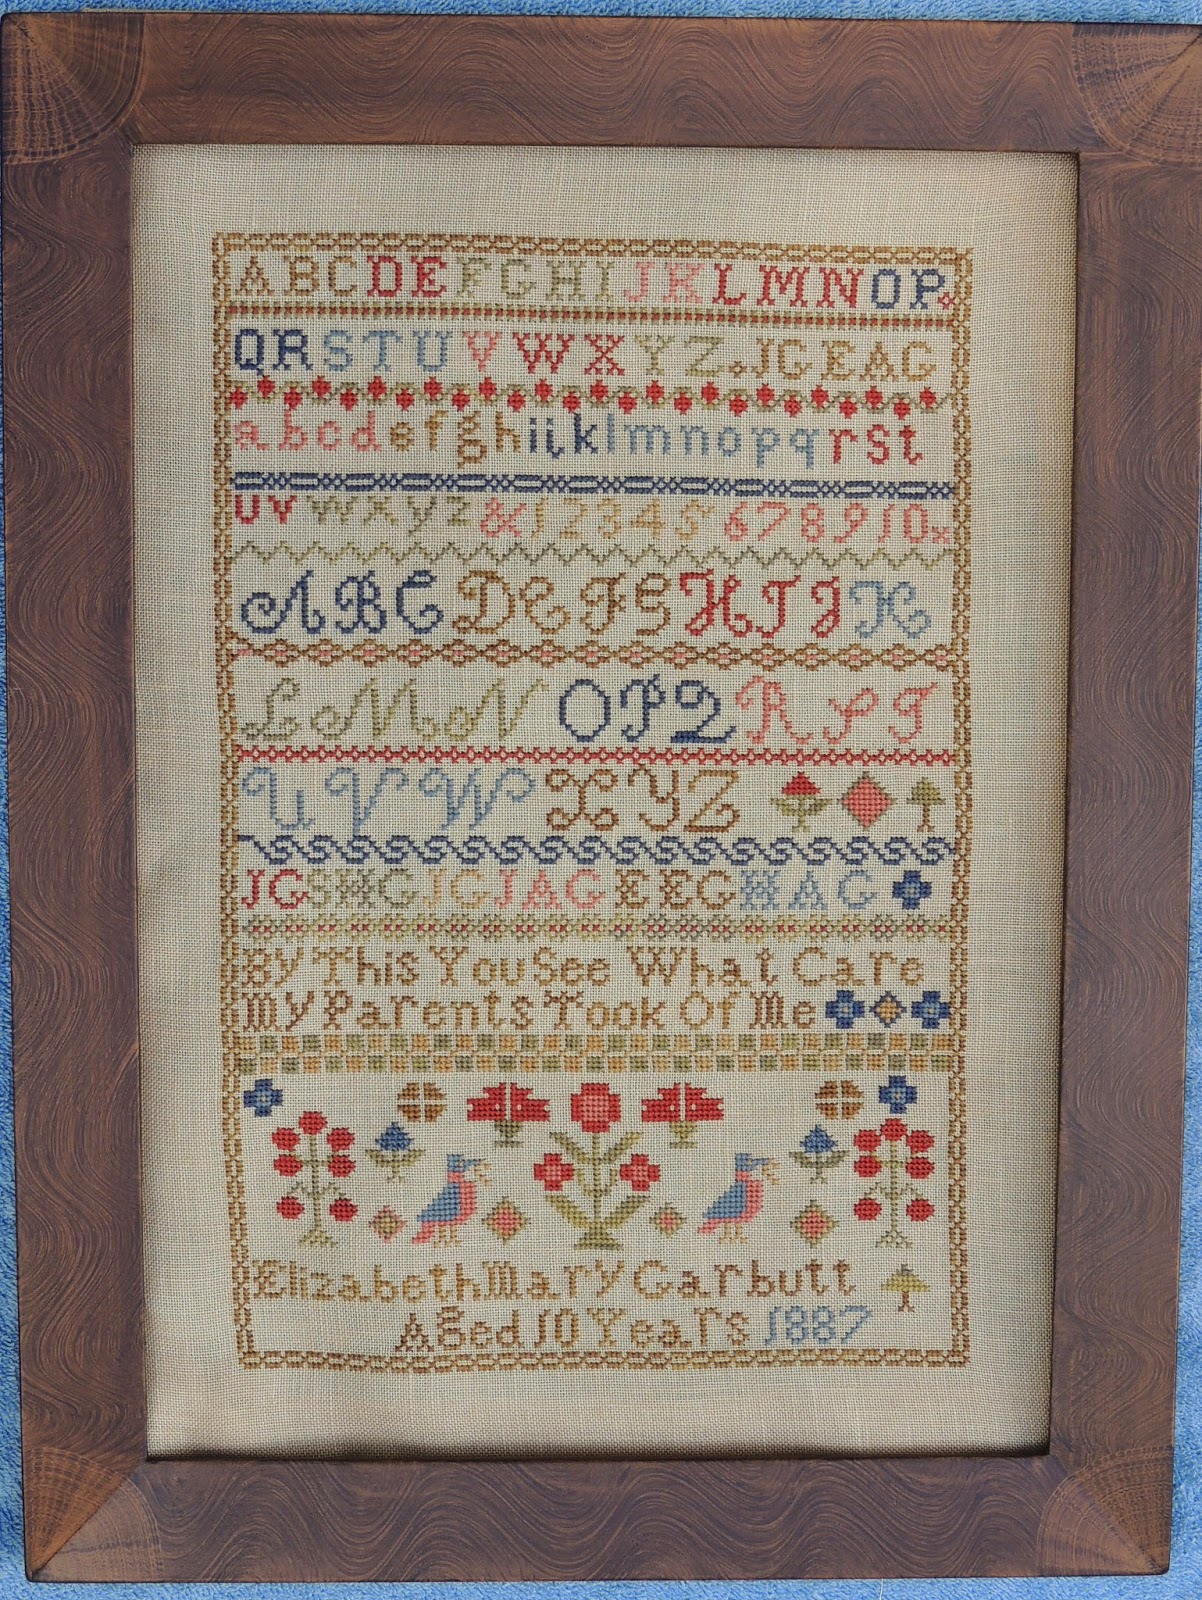 ABCDEFGHIJKLMNOP
QRSTUVWXYZ JG EAG
abcdefghijklmnopqrst
uvwxyz&12345678910
ABCDEFGHIJK
LMNOPQRST
UVWXYZ
JG SHG JG JAG EEG HAG
By This You See What Care
My Parents Took Of Me
Elizabeth Mary Garbutt
Aged 10 Years 1887